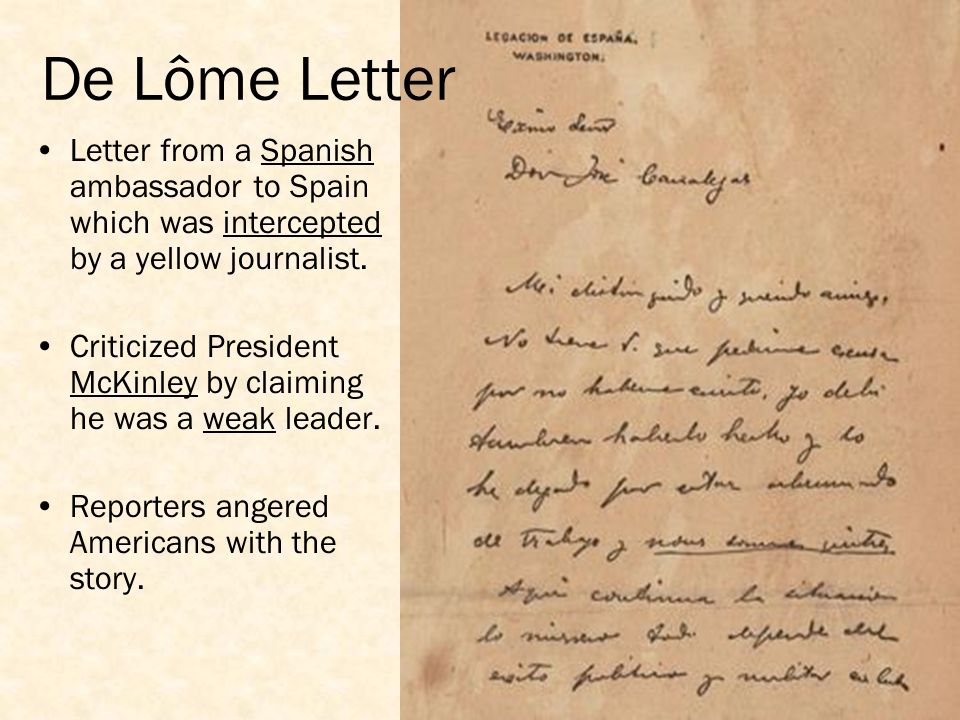 De Lôme Letter
• Letter from a Spanish
ambassador to Spain
which was intercepted
by a yellow journalist.
• Criticized President
McKinley by claiming
he was a weak leader.
• Reporters angered
Americans with the
story.
LEGACION DE ESPAÑA.
WASHINGTON.
Exmo Señor
Don José Canalejas
Mi distinguido y querido amigo,
No tiene V. que pedirme excusa
por no haberme escrito, yo debí
tambien haberlo hecho y lo
he dejado por estar abrumado
de trabajo y nous sommes quittes
Aqui continua la situacion
lo mismo todo depende del
exito politico y militar en Cuba